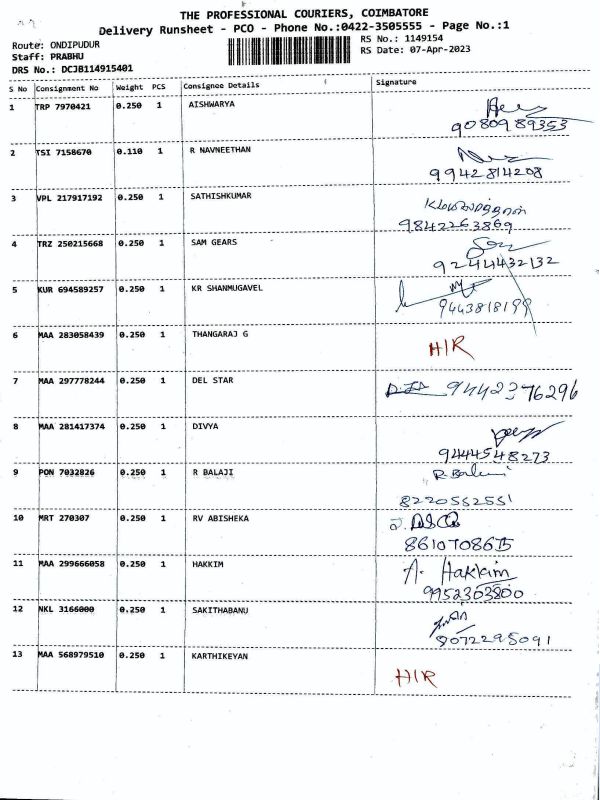 THE PROFESSIONAL COURIERS, COIMBATORE
Delivery Runsheet - PCO - Phone No.:0422-3505555 - Page No.:1
Route: ONDIPUDUR
RS No.: 1149154
Staff: PRABHU
RS Date: 07-Apr-2023
DRS No.: DCJB114915401
S No Consignment No Weight PCS Consignee Details Signature
1 TRP 7970421 0.250 1 AISHWARYA
9080989353
2 TSI 7158670 0.110 1 R NAVNEETHAN
9942814208
3 VPL 217917192 0.250 1 SATHISHKUMAR
9842263869
4 TRZ 250215668 0.250 1 SAM GEARS
9244432132
5 KUR 694589257 0.250 1 KR SHANMUGAVEL
9443818199
6 MAA 283058439 0.250 1 THANGARAJ G
H/R
7 MAA 297778244 0.250 1 DEL STAR 9442376296
8 MAA 281417374 0.250 1 DIVYA
9444548273
9 PON 7032826 0.250 1 R BALAJI R. Balaji
8220552551
10 MRT 270307 0.250 1 RV ABISHEKA
11 MAA 299666058 0.250 1 HAKKIM A. Hakkim
9952303800
12 NKL 3166000 0.250 1 SAKITHABANU
9072295091
13 MAA 568979510 0.250 1 KARTHIKEYAN
H/R